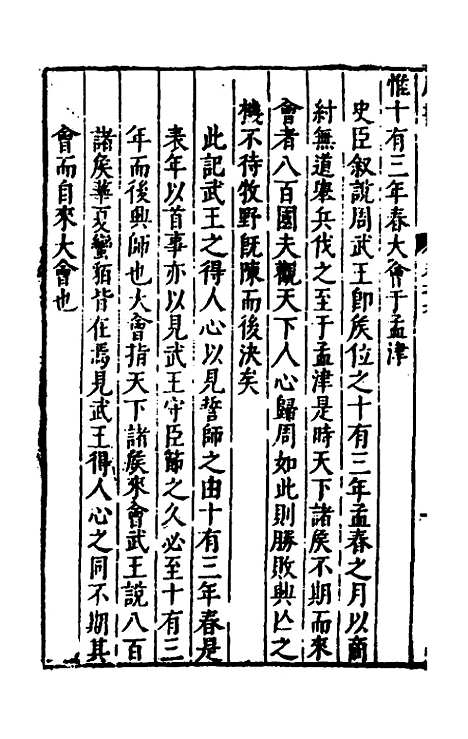 惟十有三年春大會于孟津
史臣叙說周武王即矦位之十有三年孟春之月以商
紂無道舉兵伐之至于孟津是時天下諸矦不期而來
會者八百國夫觀天下人心歸周如此則勝敗興亾之
機不待牧野旣陳而後決矣
此記武王之得人心以見誓師之由十有三年春是
表年以首事亦以見武王守臣節之久必至十有三
年而後興師也大會指天下諸矦來會武王說八百
諸矦華夏蠻貊皆在焉見武王得人心之同不期其
會而自來大會也